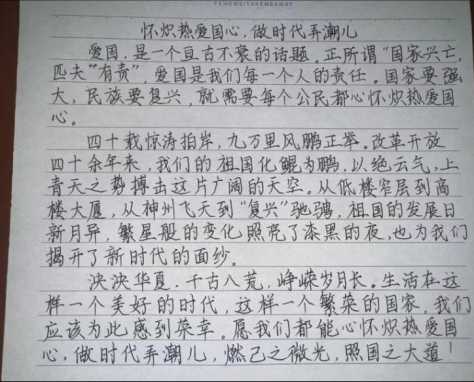 怀炽热爱国心,做时代弄潮儿
爱国,是一个亘古不衰的话题。正所谓“国家兴亡,
匹夫“有责”,爱国是我们每一个人的责任。国家要强
大,民族要复兴,就需要每个公民都心怀炽热爱国
心。
四十载惊涛拍岸,九万里风鹏正举。改革开放
四十余年来,我们的祖国化鲲为鹏,以绝云气,上
青天之势搏击这片广阔的天空。从低矮窄层到高
楼大厦,从神州飞天到“复兴”驰骋,祖国的发展日
新月异,繁星般的变化照亮了漆黑的夜,也为我们
揭开了新时代的面纱。
泱泱华夏,千古八荒,峥嵘岁月长。生活在这
样一个美好的时代,这样一个繁荣的国家,我们
应该为此感到荣幸。愿我们都能心怀炽热爱国
心,做时代弄潮儿,燃己之微光,照国之大道!